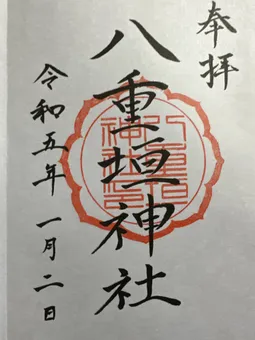 奉拝
八重垣神社
令和五年一月二日